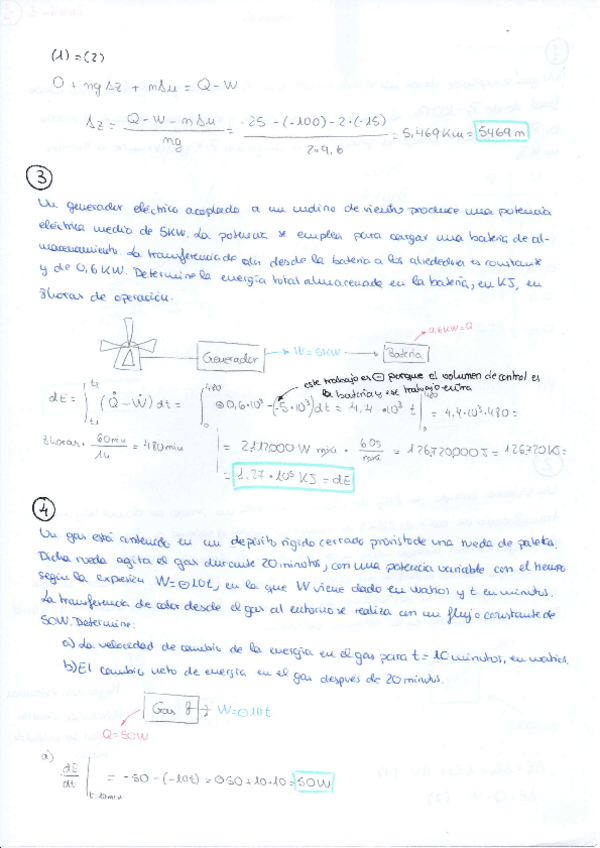 (1) = (2)
0 + mgΔz + mΔu = Q - W
Δz = (Q - W - mΔu)/mg = (-25 - (-100) - 2·(-15))/(2·9,6) = 5,469 Km = 5469 m
③
Un generador eléctrico acoplado a un molino de viento produce una potencia
eléctrica medio de 5KW. La potencia se emplea para cargar una batería de al-
macenamiento. La transferencia de calor desde la batería a los alrededores es constante
y de 0,6 KW. Determine la energía total almacenada en la batería, en KJ, en
8 horas de operación.
0,6KW = Q
Generador → W = 5KW → Batería
este trabajo es ⊖ porque el volumen de control es
la batería y ese trabajo entra
dE = ∫_{t1}^{t2} (Q̇ - Ẇ) dt = ∫_0^{480} ⊖0,6·10³ - (-5·10³) dt = 4,4·10³ t |_0^{480} = 4,4·10³·480 =
8 horas · 60min/1h = 480 min | = 2.112.000 W min · 60s/min = 126.720.000 J = 126.720 KJ =
= 1.27·10⁵ KJ = dE
④
Un gas está contenido en un depósito rígido cerrado provisto de una rueda de paletas.
Dicha rueda agita el gas durante 20 minutos, con una potencia variable con el tiempo
según la expresión W = ⊖10t, en la que W viene dado en watios y t en minutos.
La transferencia de calor desde el gas al entorno se realiza con un flujo constante de
50W. Determine:
a) La velocidad de cambio de la energía en el gas para t = 10 minutos, en watios.
b) El cambio neto de energía en el gas después de 20 minutos.
Gas W = ⊖10t
Q = 50W
a)
dE/dt |_{t=10min} = -50 - (-10t) = ⊖50 + 10·10 = 50W